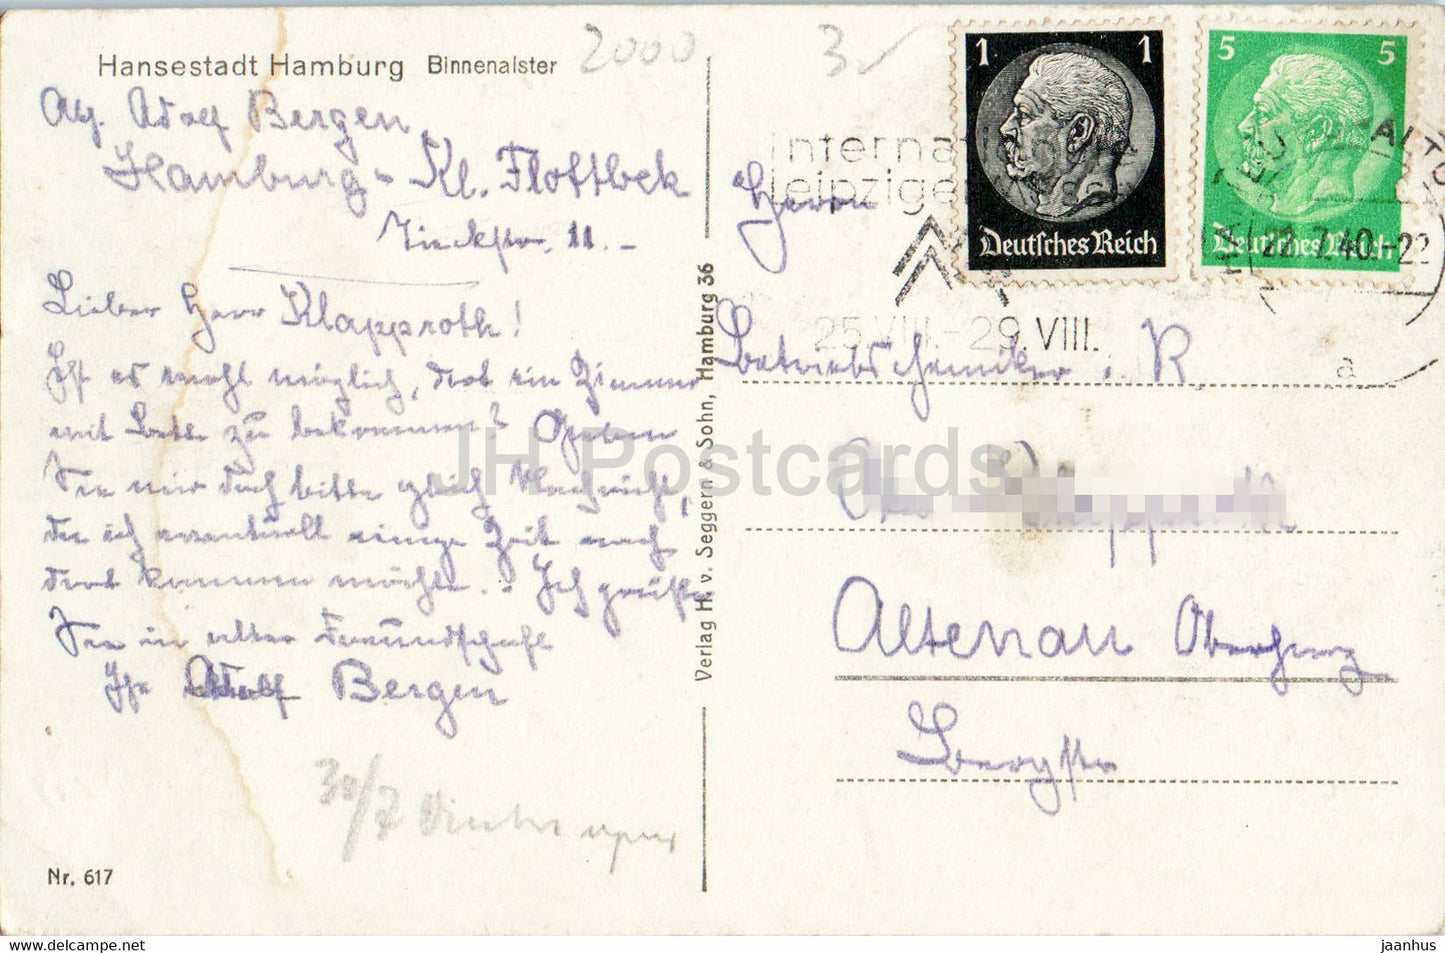 Hansestadt Hamburg Binnenalster
2000
3
Abs. Adolf Bergen,
Hamburg - Kl. Flottbek
11.-
Lieber Herr Klapproth!
Ist es wohl möglich, dort ein Zimmer
mit Bett zu bekommen? Geben
Sie mir doch bitte gleich Nachricht,
da ich eventuell einige Zeit nach
dort kommen möchte. - Ich grüße
Sie in alter Freundschaft
Ihr Adolf Bergen
30/7
Nr. 617
Verlag H. v. Seggern & Sohn, Hamburg 36
1 1
Deutsches Reich
5 5
Deutsches Reich
Internat
Leipziger
25.VIII.-29.VIII.
22.7.40.-22
a
Herrn
Betriebschemiker i. R.
Altenau Oberharz
Bergstr
JH Postcards
www.delcampe.net
jaanhus